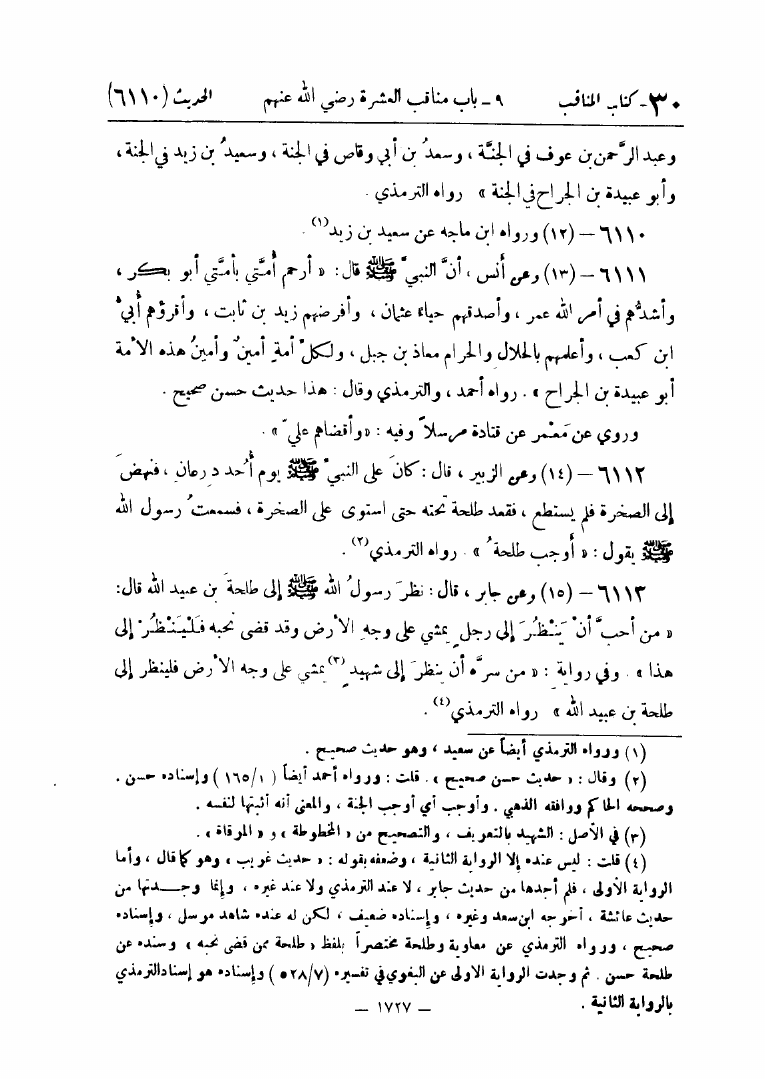 ٣٠- كتاب المناقب ٩ - باب مناقب العشرة رضي الله عنهم الحديث (٦١١٠)
وعبد الرَّحمن بن عوف في الجنَّة ، وسعدُ بن أبي وقاص في الجنة ، وسعيدُ بن زيد في الجنة ،
وأبو عبيدة بن الجراح في الجنة » رواه الترمذي .
٦١١٠ – (١٢) ورواه ابن ماجه عن سعيد بن زيد(١) .
٦١١١ – (١٣) وعن أنس ، أنَّ النبيَّ ﷺ قال : « أرحم أُمَّتي بأمَّتي أبو بكر ،
وأشدُّهم في أمر الله عمر ، وأصدقهم حياءً عثمان ، وأفرضهم زيد بن ثابت ، وأقرؤهم أُبيُّ
ابن كعب ، وأعلمهم بالحلال والحرام معاذ بن جبل ، ولكلِّ أمةٍ أمينٌ وأمينُ هذه الأمة
أبو عبيدة بن الجراح » . رواه أحمد ، والترمذي وقال : هذا حديث حسن صحيح .
وروي عن مَعْمر عن قتادة مرسلاً وفيه : «وأقضاهم عليّ » .
٦١١٢ – (١٤) وعن الزبير ، قال : كانَ على النبيِّ ﷺ يوم أُحد درعان ، فنهضَ
إلى الصخرة فلم يستطع ، فقعد طلحة تحته حتى استوى على الصخرة ، فسمعتُ رسول الله
ﷺ يقول : « أَوجب طلحةُ » . رواه الترمذي(٢) .
٦١١٣ – (١٥) وعن جابر ، قال : نظرَ رسولُ الله ﷺ إلى طلحةَ بن عبيد الله قال :
« من أحبَّ أنْ يَنْظُرَ إلى رجلٍ يمشي على وجهِ الأرض وقد قضى نحبه فَلْيَنْظُرْ إلى
هذا » . وفي رواية : « من سرَّه أن ينظرَ إلى شهيدٍ(٣) يمشي على وجه الأرض فلينظر إلى
طلحة بن عبيد الله » رواه الترمذي(٤) .
(١) ورواه الترمذي أيضاً عن سعيد ، وهو حديث صحيح .
(٢) وقال : « حديث حسن صحيح » . قلت : ورواه أحمد أيضاً ( ١٦٥/١ ) وإسناده حسن .
وصححه الحاكم ووافقه الذهبي . وأوجب أي أوجب الجنة ، والمعنى أنه أثبتها لنفسه .
(٣) في الأصل : الشهيد بالتعريف ، والتصحيح من « المخطوطة » و « المرقاة » .
(٤) قلت : ليس عنده إلا الرواية الثانية ، وضعفه بقوله : « حديث غريب » وهو كما قال ، وأما
الرواية الأولى ، فلم أجدها من حديث جابر ، لا عند الترمذي ولا عند غيره ، وإنما وجدتها من
حديث عائشة ، أخرجه ابن سعد وغيره ، وإسناده ضعيف ، لكن له عنده شاهد مرسل ، وإسناده
صحيح ، ورواه الترمذي عن معاوية وطلحة مختصراً بلفظ « طلحة ممن قضى نحبه » وسنده عن
طلحة حسن . ثم وجدت الرواية الأولى عن البغوي في تفسيره (٥٢٨/٧) وإسناده هو إسناد الترمذي
بالرواية الثانية .
– ١٧٢٧ –